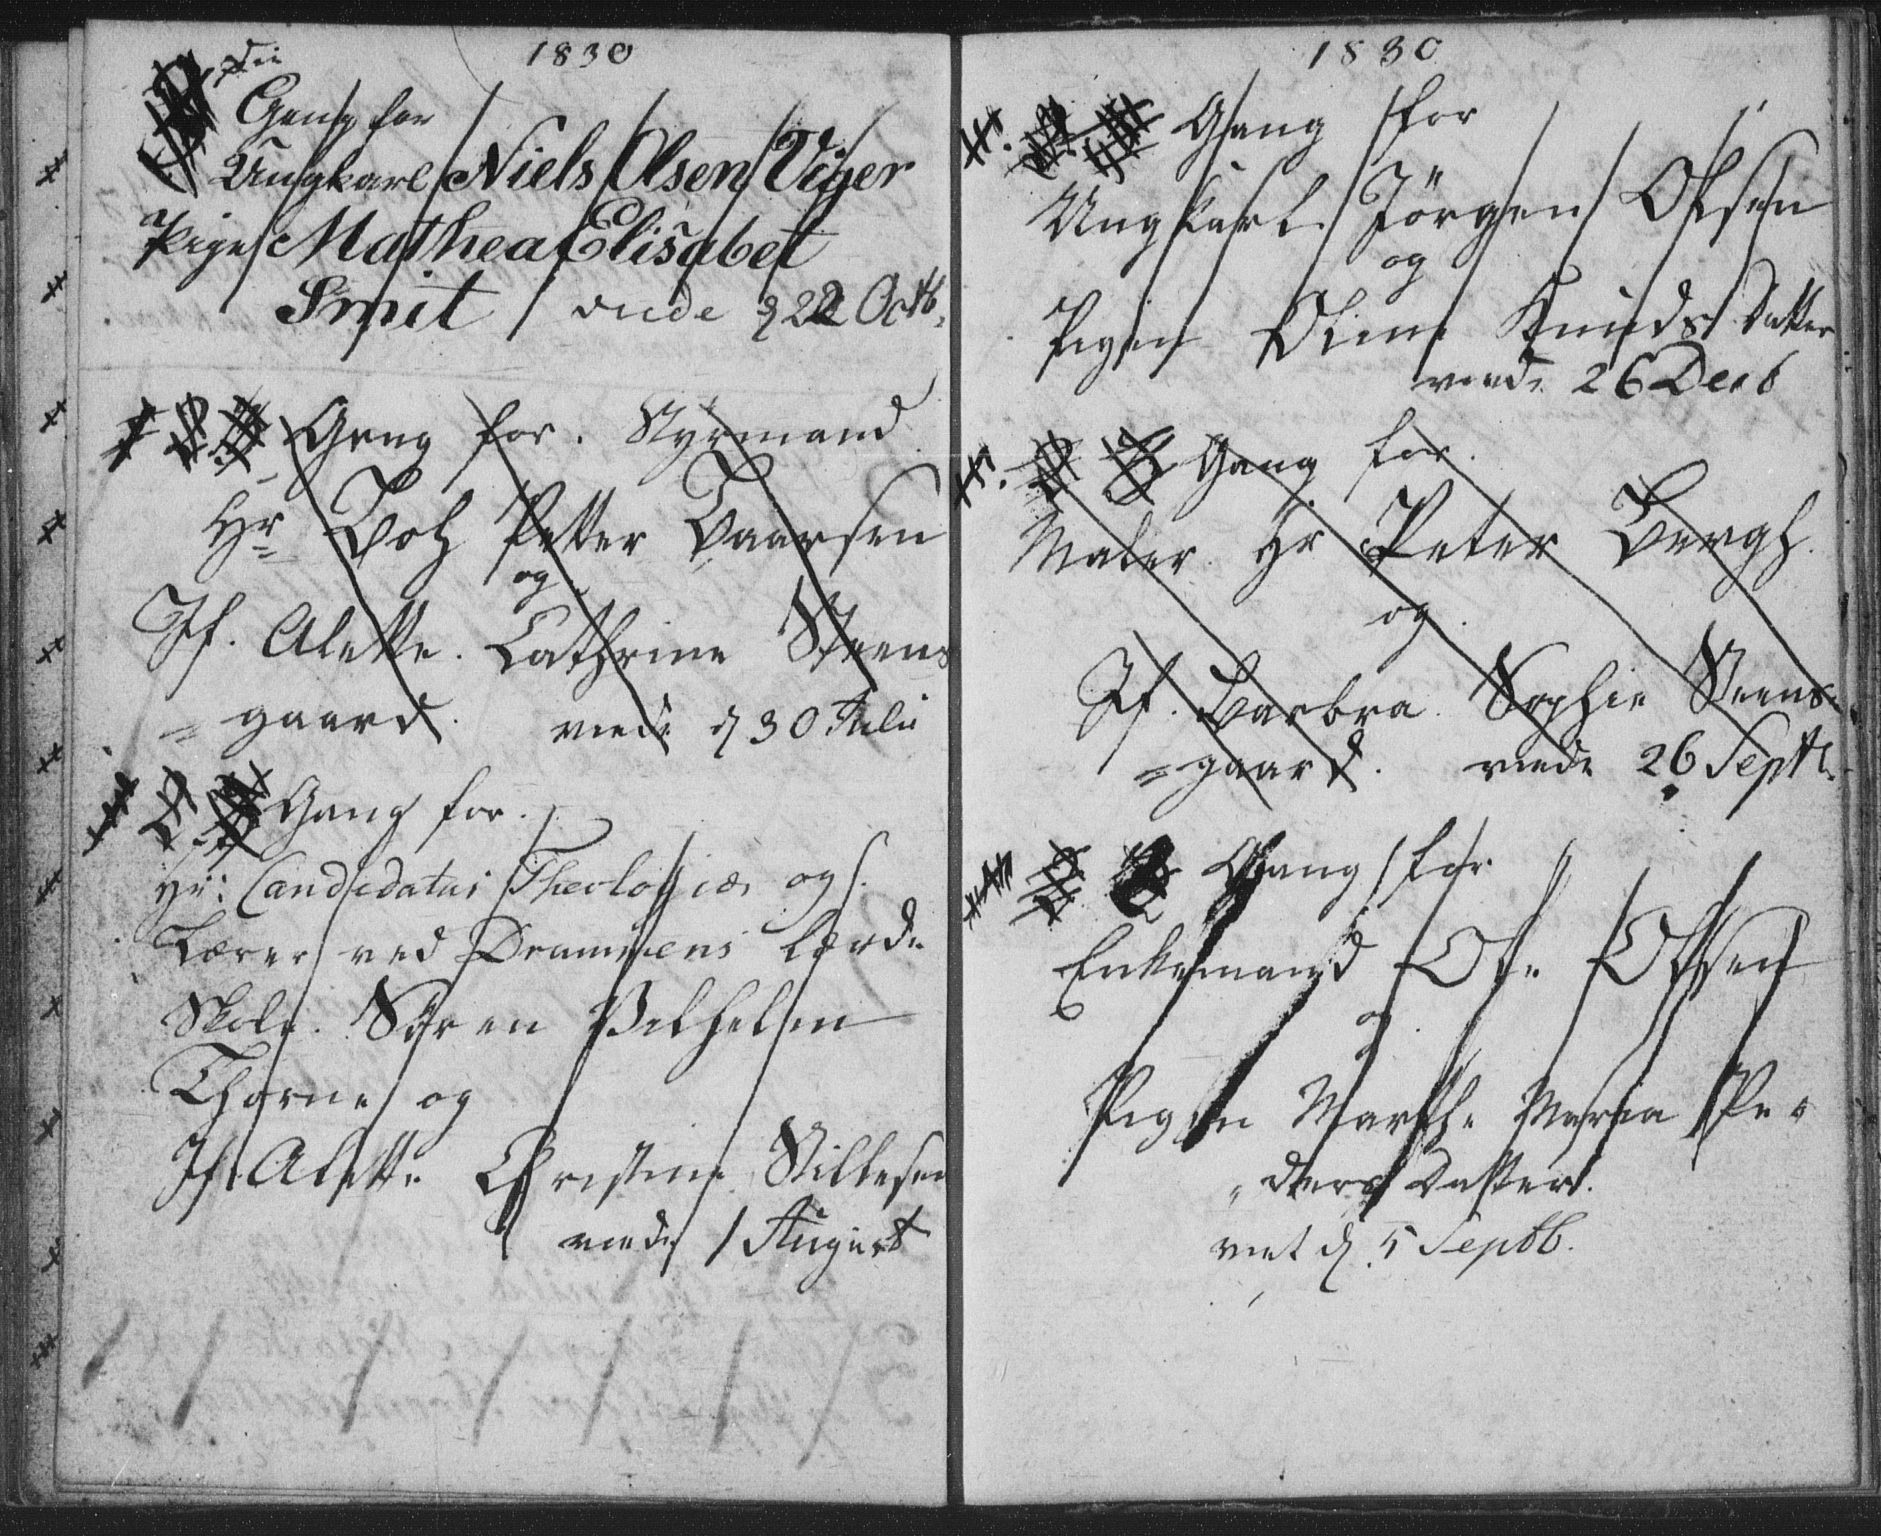 1830
Gang for
Ungkarl Niels Olsen Viger
Pige Mathea Elisabet
Smit viede d 22 Octb.
Gang for. Styrmand
Hr Boh Petter Baarsen
og
Jf. Alette. Cathrine Steens
= gaard. viede d 30 Julii
Gang for.
Hr: Candidatus Theologiæ og
Lærer ved Drammens lærde
Skole. Søren Vilhelm
Thorne og
Jf. Alette Christine Stillesen
viede 1 August
1830
Gang for
Ungkarl. Jörgen Olsen
og
Pigen Oline Knuds Datter
viede 26 Decb
Gang for.
Maler Hr Peter Bergh.
og.
Jf. Barbra Sophie Steens-
= gaard. viede 26 Septb.
Gang for
Enkemand Ole Olsen
og.
Pigen Marthe Maria Pe-
ders Datter.
viet d. 5 Septb.